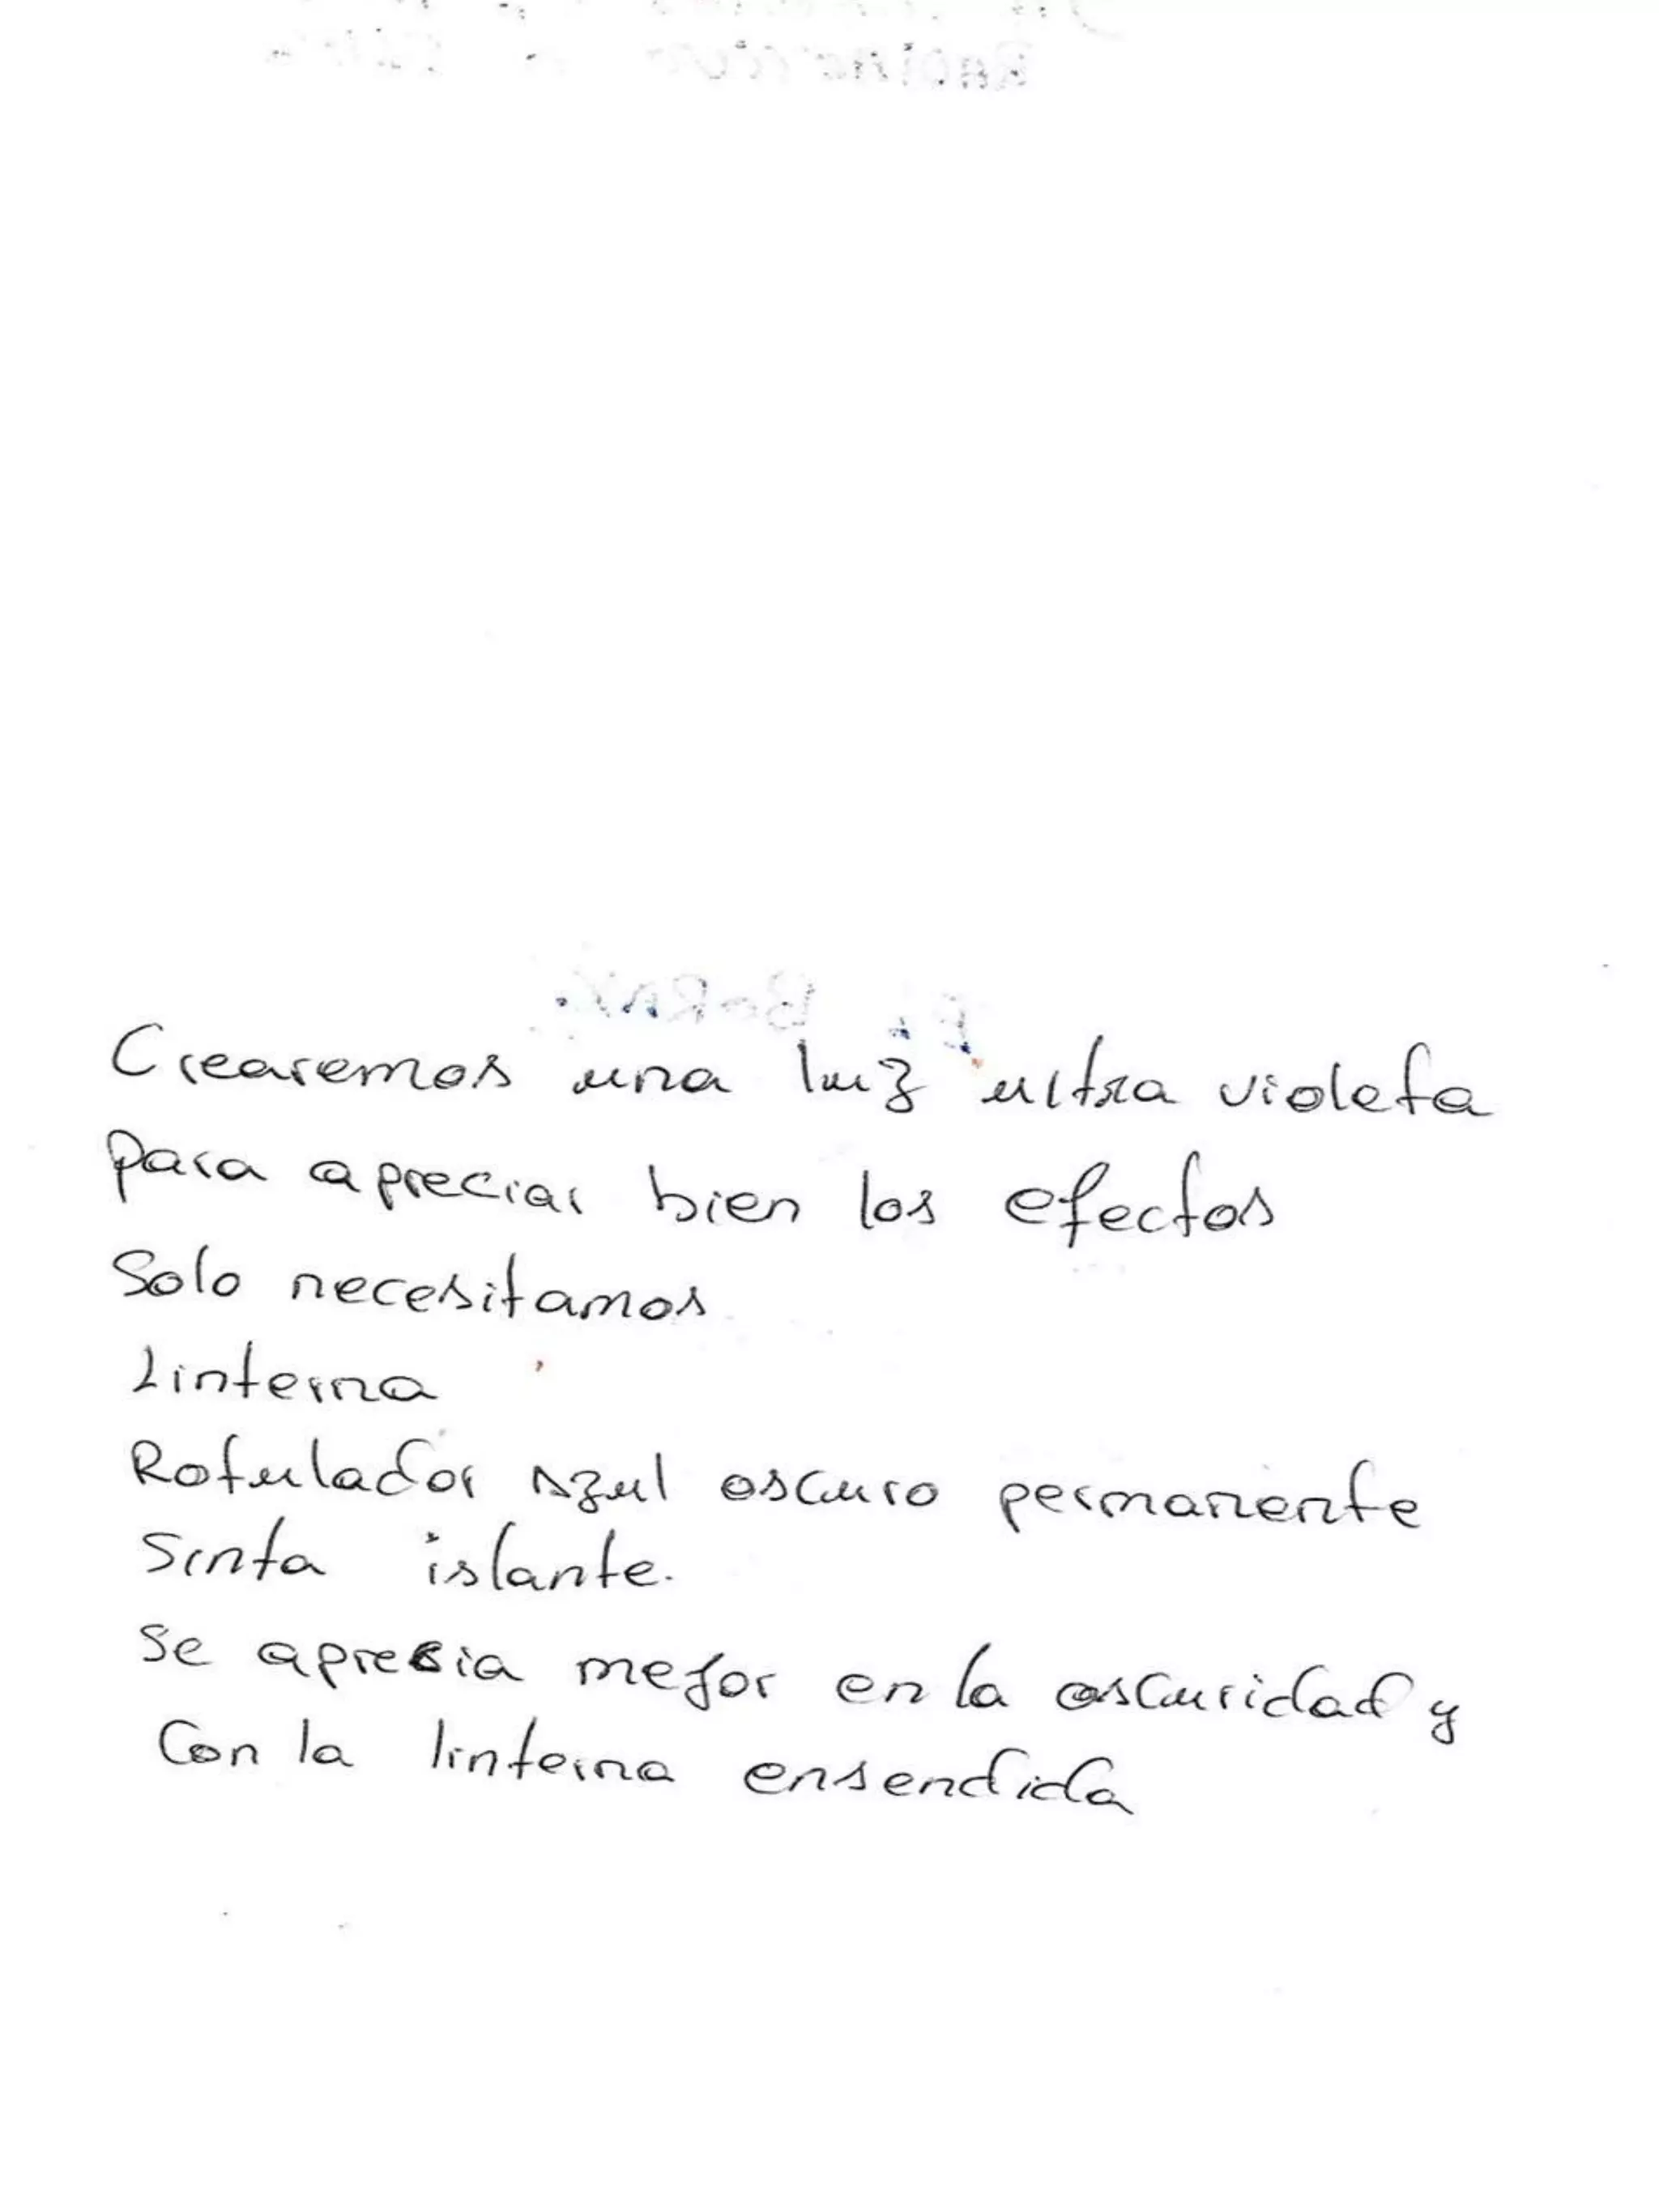 Crearemos una luz ultra violeta
para apreciar bien los efectos
Solo necesitamos
Linterna
Rotulador Azul oscuro permanente
Sinta islante.
Se apresia mejor en la oscuridad y
Con la linterna ensendida